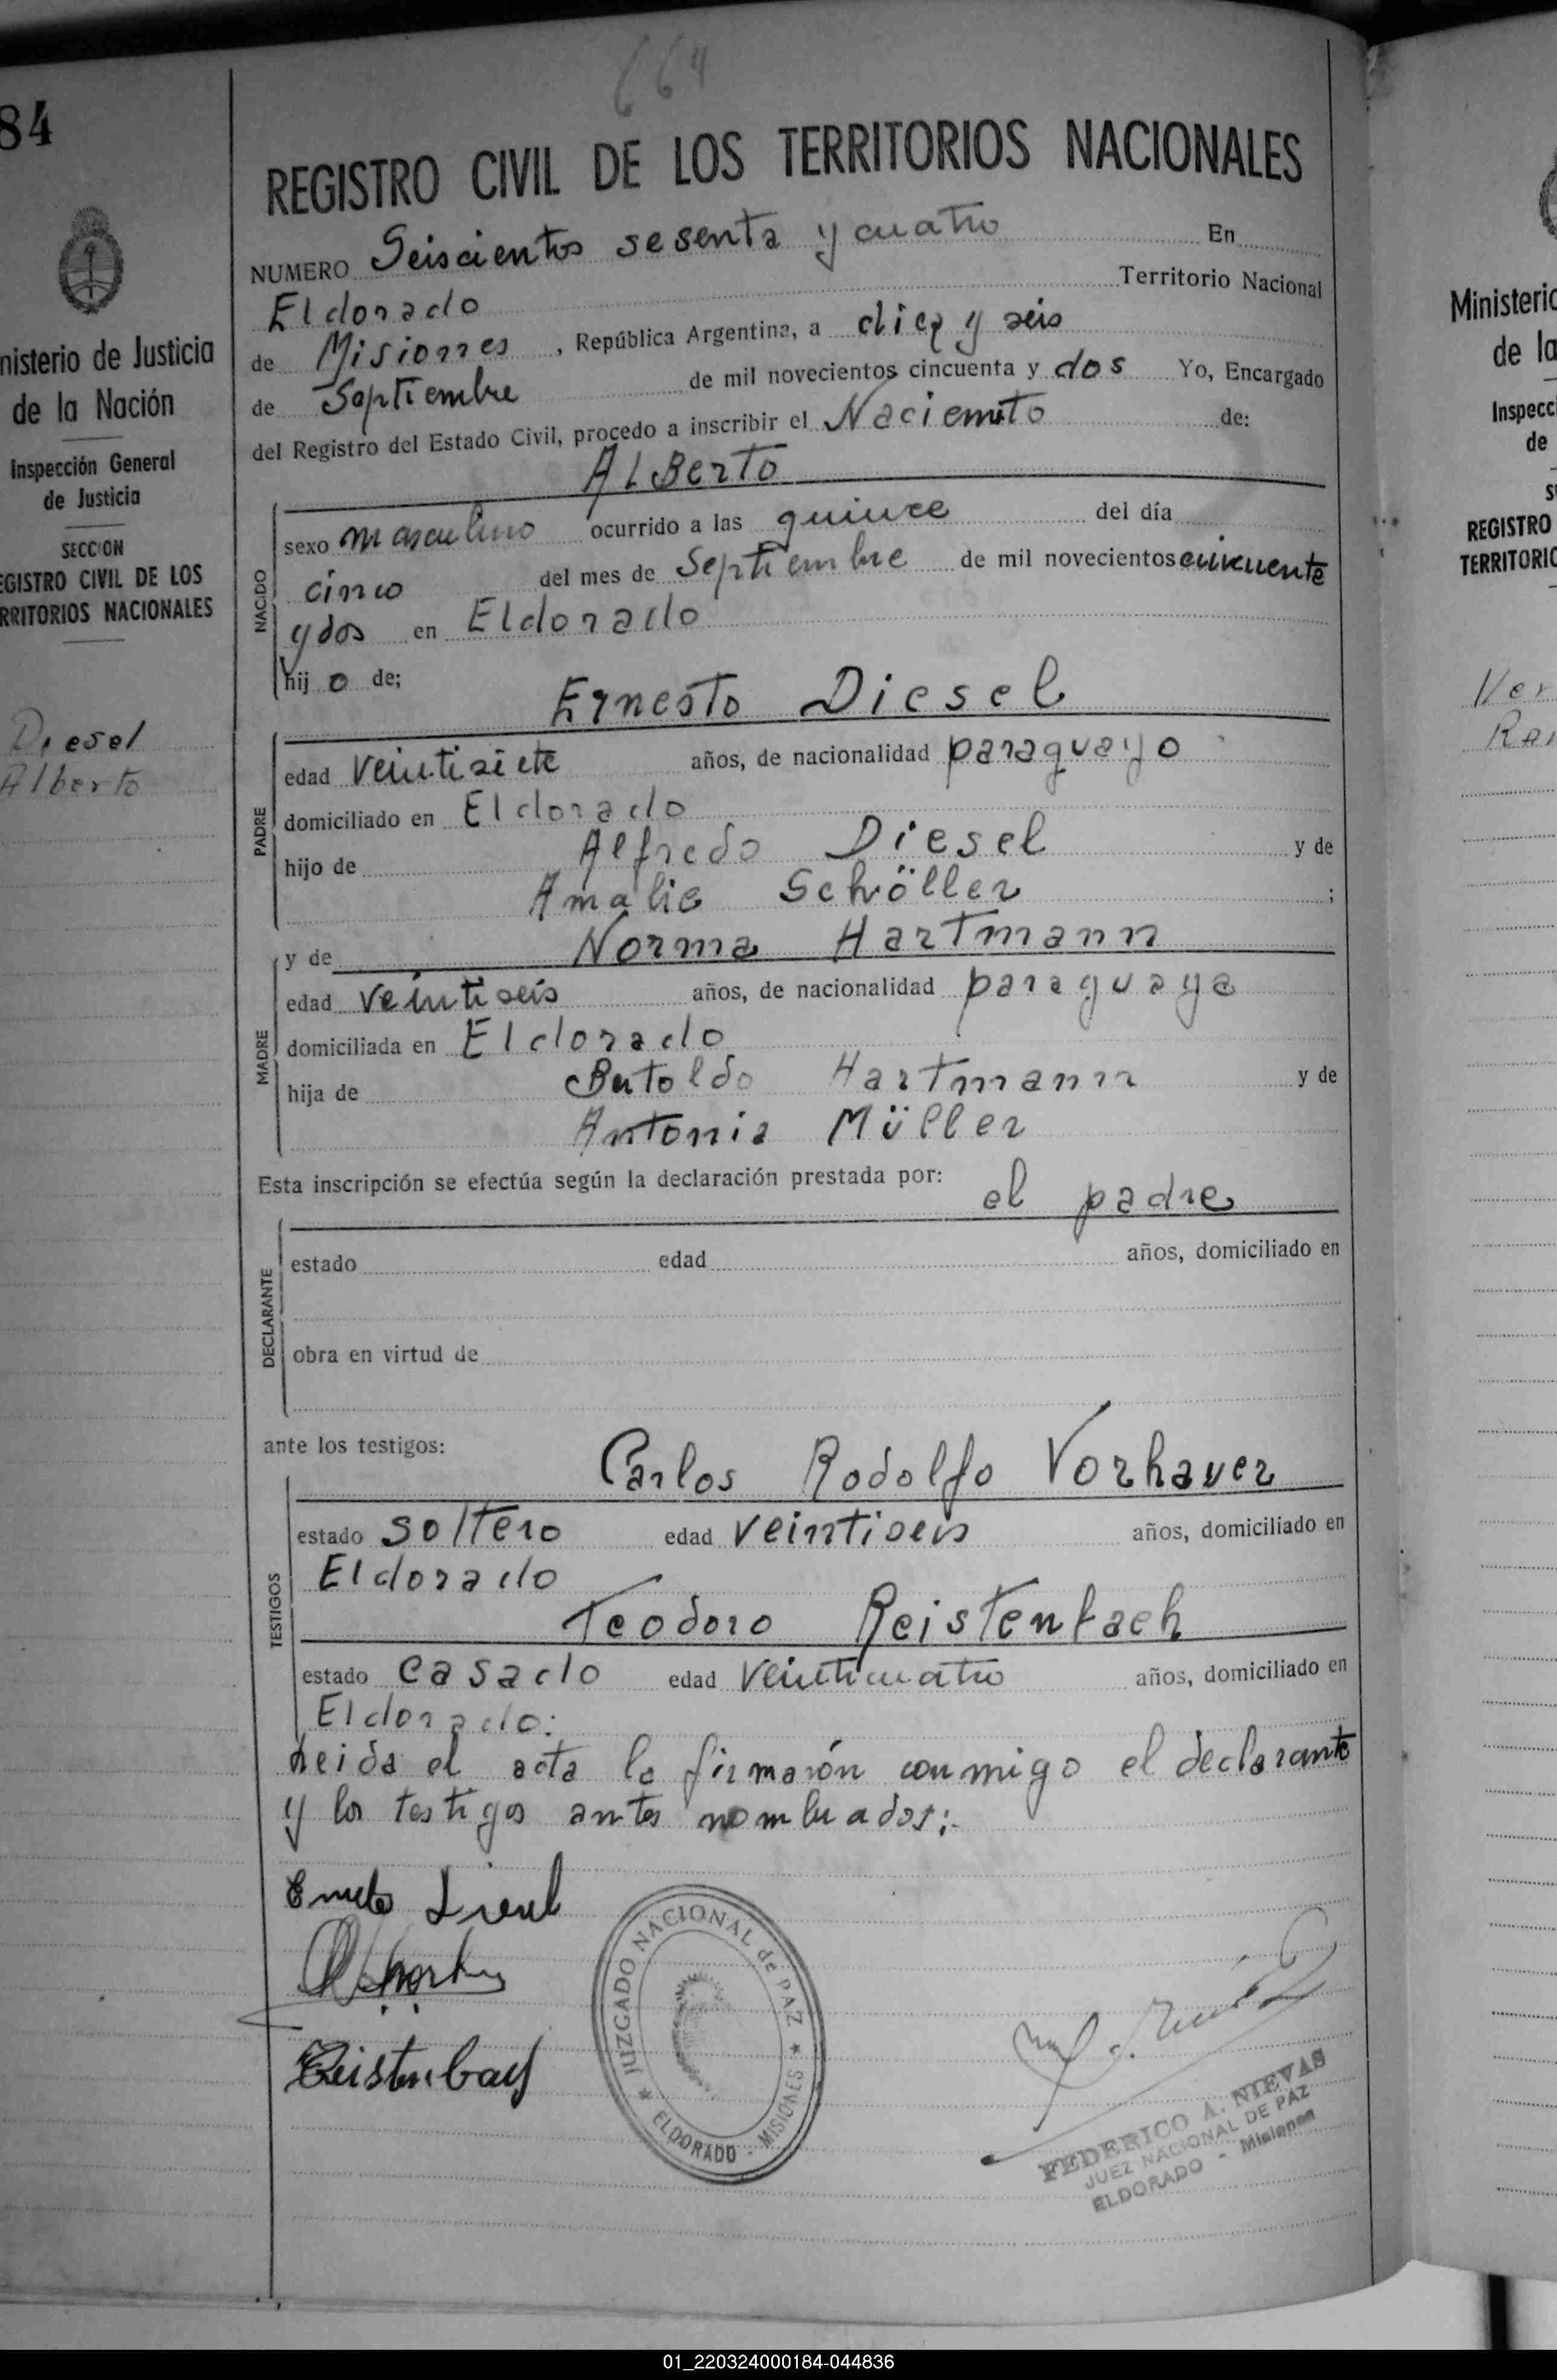 664
84
Ministerio de Justicia
de la Nación
Inspección General
de Justicia
SECCION
REGISTRO CIVIL DE LOS
TERRITORIOS NACIONALES
Diesel
Alberto
REGISTRO CIVIL DE LOS TERRITORIOS NACIONALES
NUMERO Seiscientos sesenta y cuatro En
Eldorado Territorio Nacional
de Misiones, República Argentina, a diez y seis
de Septiembre de mil novecientos cincuenta y dos Yo, Encargado
del Registro del Estado Civil, procedo a inscribir el Naciemto de:
ALBerto
NACIDO
sexo masculino ocurrido a las quince del día
cinco del mes de Septiembre de mil novecientos cincuenta
y dos en Eldorado
hij o de;
Ernesto Diesel
PADRE
edad veintisiete años, de nacionalidad paraguayo
domiciliado en Eldorado
hijo de Alfredo Diesel y de
Amalia Schöller ;
y de Norma Hartmann
MADRE
edad veintiseis años, de nacionalidad paraguaya
domiciliada en Eldorado
hija de Bertoldo Hartmann y de
Antonia Müller
Esta inscripción se efectúa según la declaración prestada por: el padre
DECLARANTE
estado edad años, domiciliado en
obra en virtud de
ante los testigos: Carlos Rodolfo Vorhauer
TESTIGOS
estado soltero edad veintiseis años, domiciliado en
Eldorado
Teodoro Reistenbach
estado casado edad veinticuatro años, domiciliado en
Eldorado:
Leida el acta la firmarón conmigo el declarante
y los testigos antes nombrados:-
Ernesto Diesel
Reistenbach
JUZGADO NACIONAL de PAZ
ELDORADO - MISIONES
FEDERICO A. NIEVAS
JUEZ NACIONAL DE PAZ
ELDORADO - Misiones
Ministerio
de la
Inspecc
de
REGISTRO
TERRITORIO
Ver
01_220324000184-044836